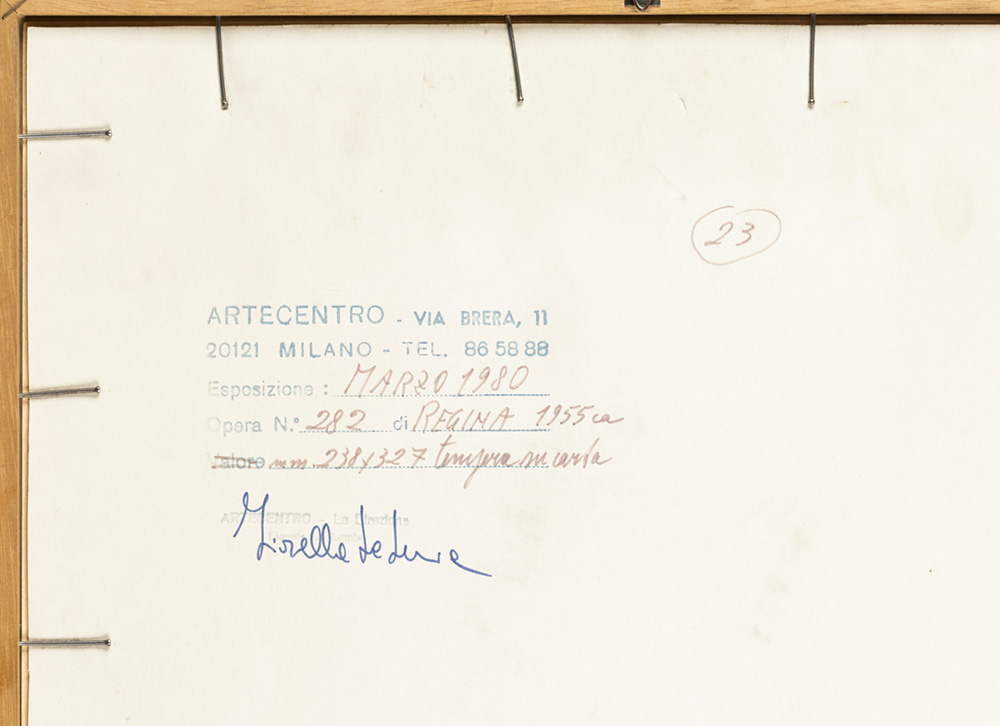 23
ARTECENTRO - VIA BRERA, 11
20121 MILANO - TEL. 86 58 88
Esposizione : MARZO 1980
Opera N.° 282 di REGINA 1955 ca
Valore mm. 238x327 tempera su carta
ARTECENTRO - La Direzione
Fiorella La Lumia